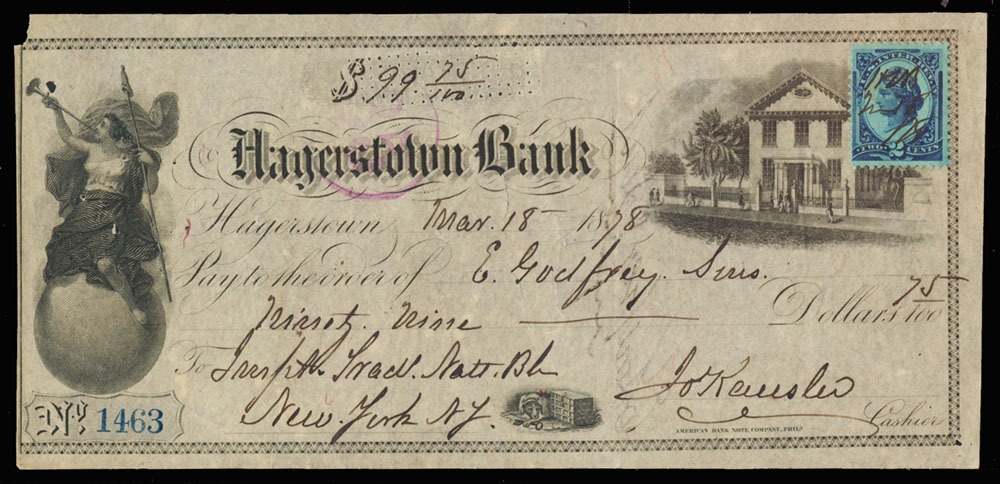 $ 99 75/100
U.S. INTER. REV.
TWO 2 CENTS
Hagerstown Bank
Hagerstown Mar. 18 1878
Pay to the order of E. Godfrey. Sons.
Ninety Nine Dollars 75/100
To Trad. Natl. Bk
New York NY.
Cashier
No. 1463
AMERICAN BANK NOTE COMPANY, PHILA.